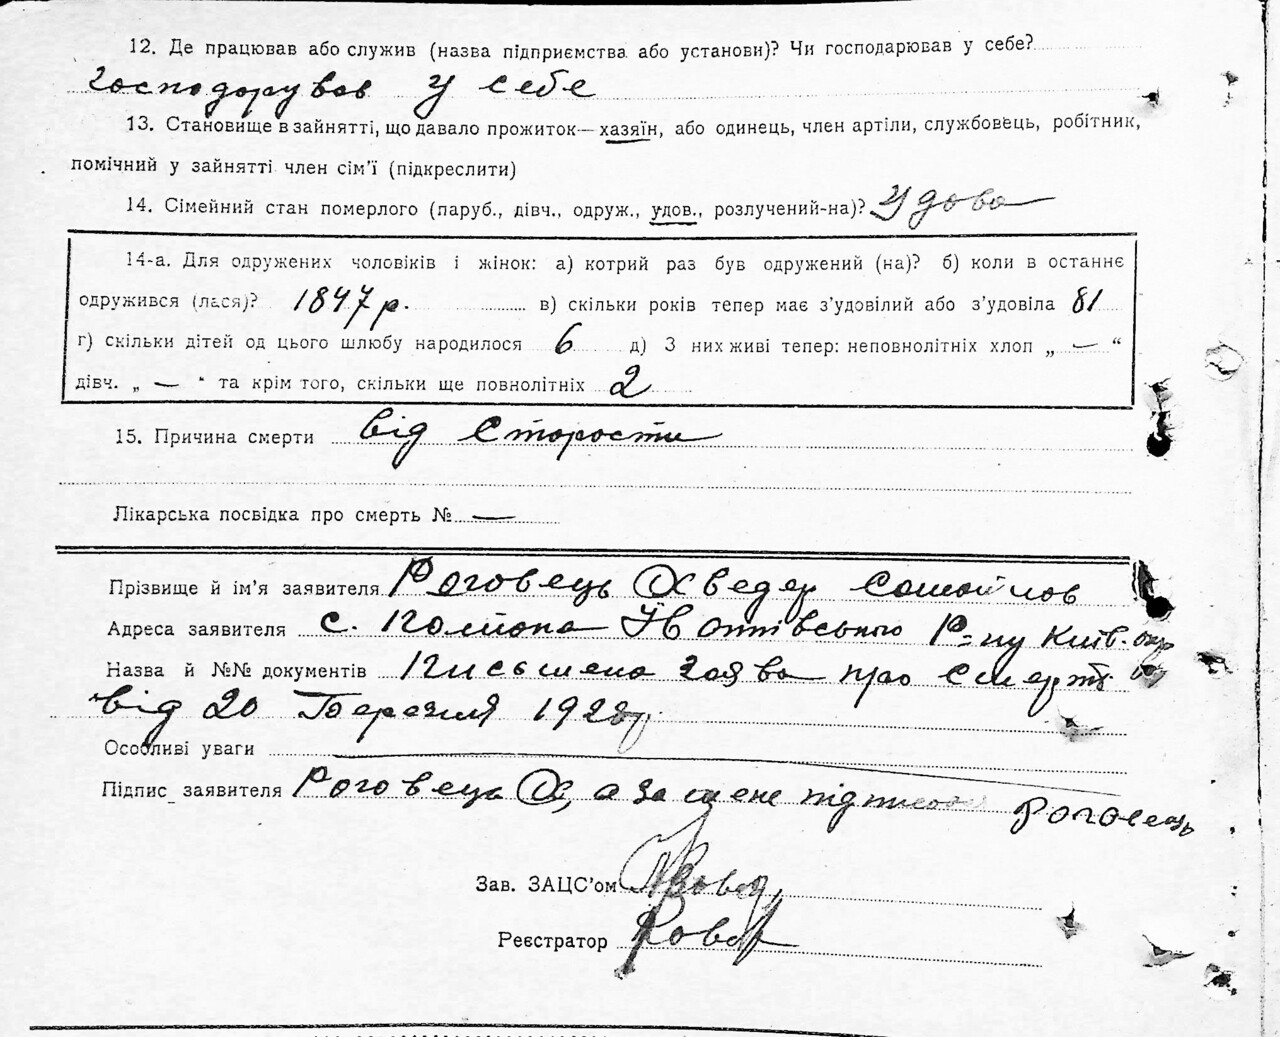 12. Де працював або служив (назва підприємства або установи)? Чи господарював у себе?
господорував у себе
13. Становище в зайнятті, що давало прожиток—хазяїн, або одинець, член артіли, службовець, робітник,
помічний у зайнятті член сім'ї (підкреслити)
14. Сімейний стан померлого (паруб., дівч., одруж., удов., розлучений-на)? Удова
14-а. Для одружених чоловіків і жінок: а) котрий раз був одружений (на)? б) коли в останнє
одружився (лася)? 1847 р. в) скільки років тепер має з'удовілий або з'удовіла 81
г) скільки дітей од цього шлюбу народилося 6 д) З них живі тепер: неповнолітніх хлоп „ — “
дівч. „ — “ та крім того, скільки ще повнолітніх 2
15. Причина смерти від старости
Лікарська посвідка про смерть № —
Прізвище й ім'я заявителя Роговець Хведер
Адреса заявителя с. р-ну Київ. окр
Назва й №№ документів Письмена заява про смерть
від 20 Березня 1928 р.
Особливі уваги
Підпис заявителя Роговець Х, а за мене підписав Роговець
Зав. ЗАЦС'ом
Реєстратор